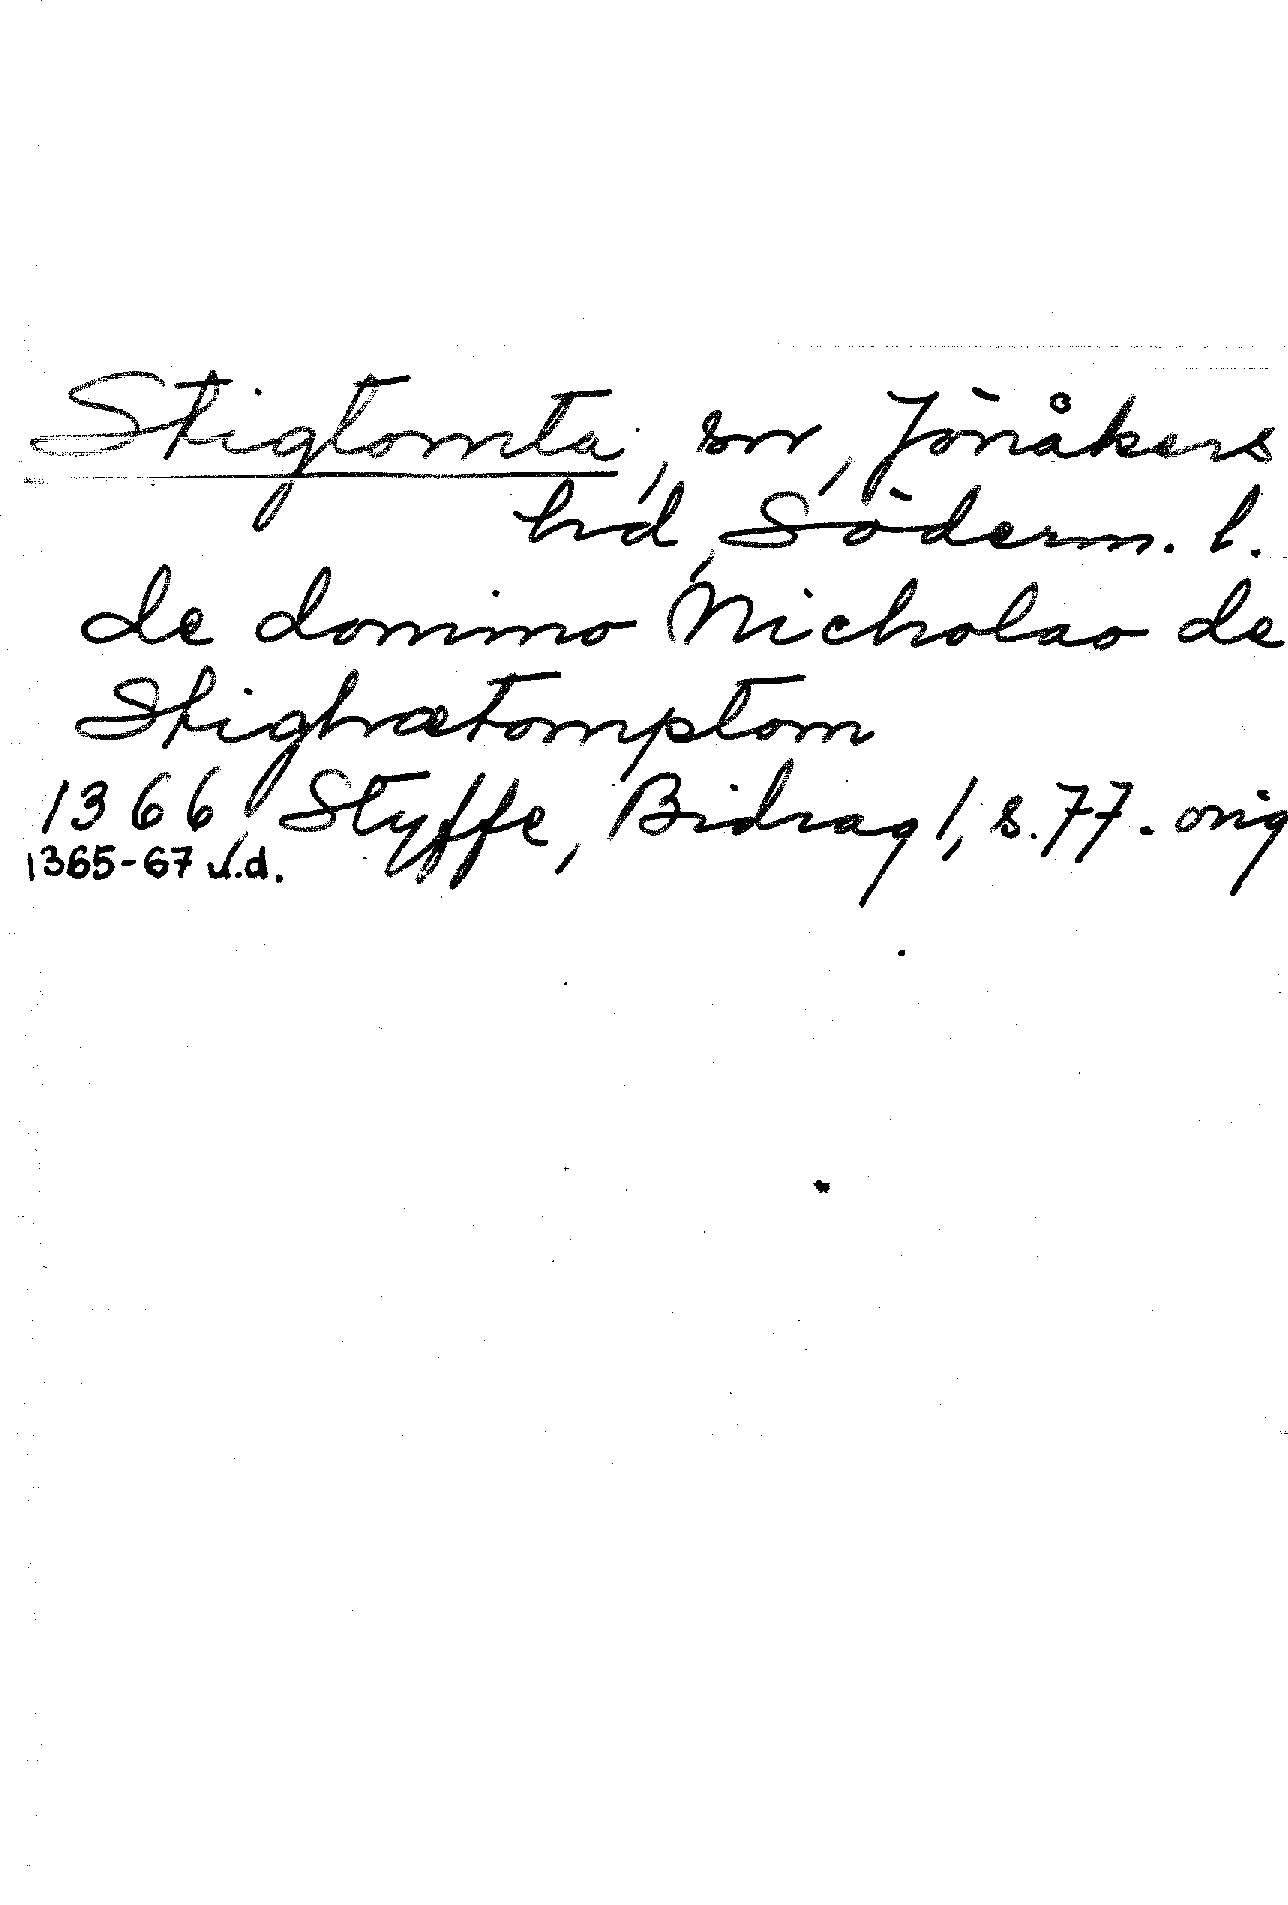 Stigtomta, sn, Jönåkers
hd, Söderm. l.
de domino Nicholao de
Stighætomptom
1366, Styffe, Bidrag 1, s. 77. orig
1365-67 u.d.